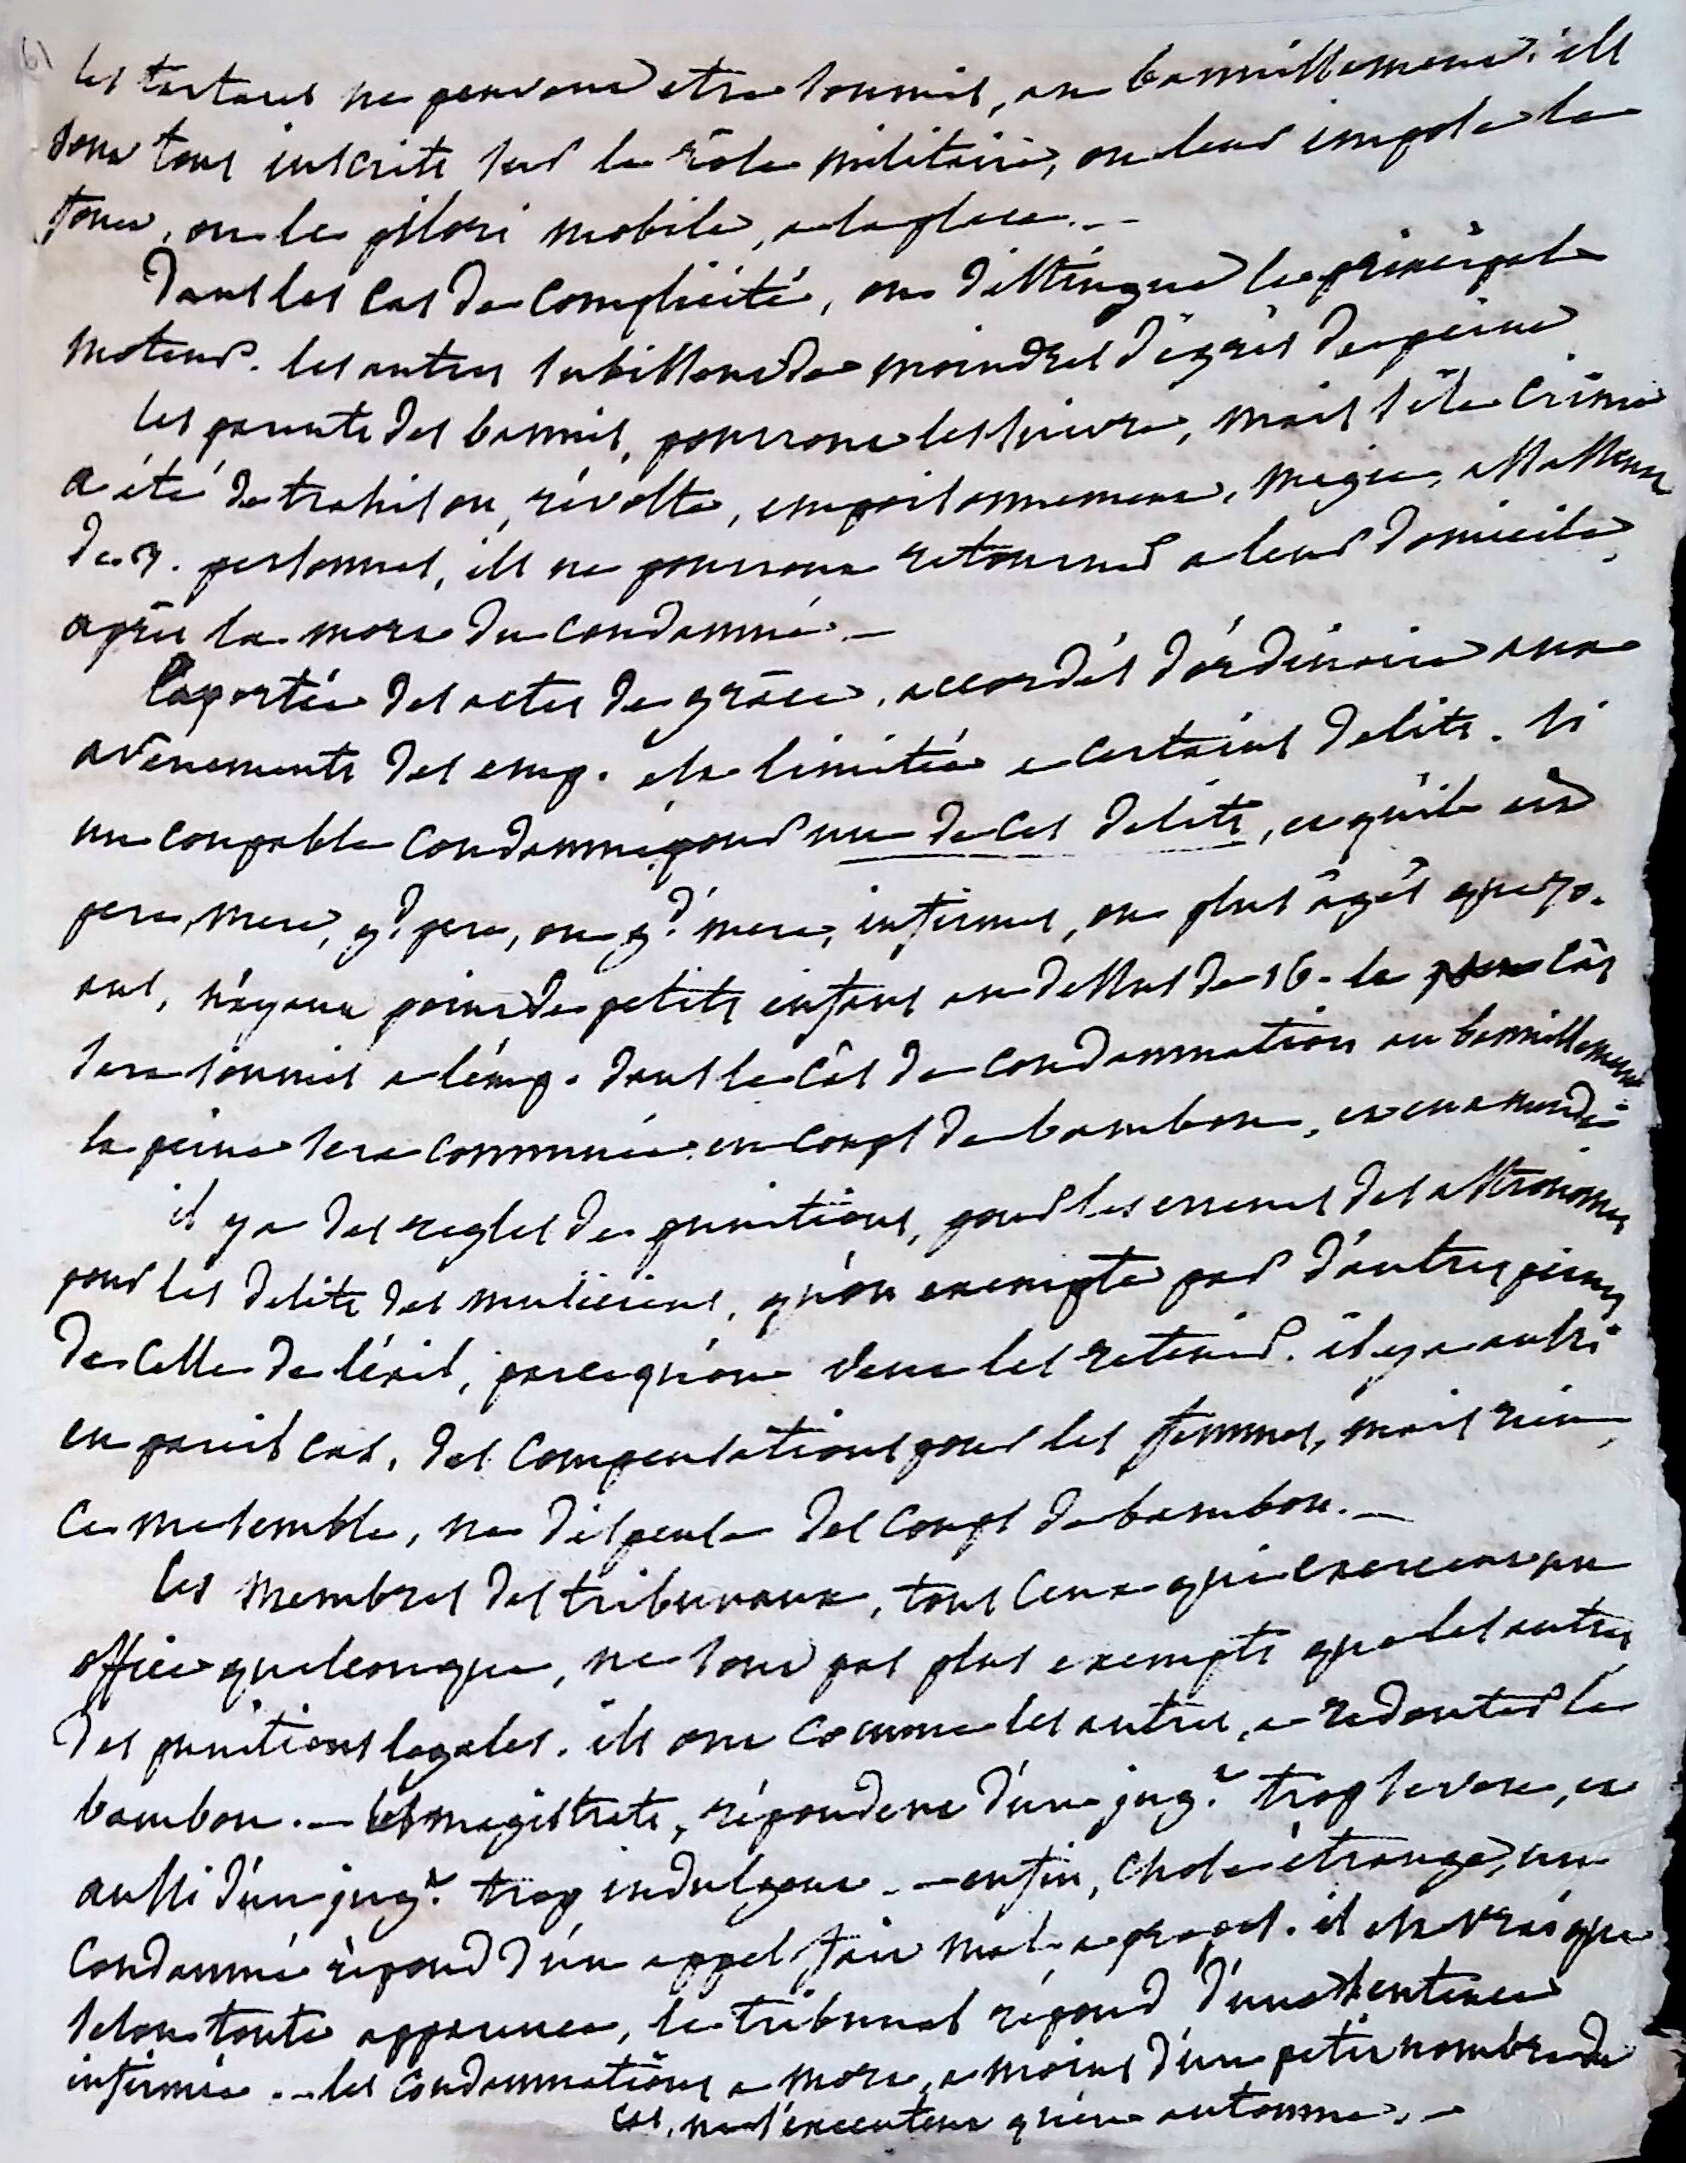 les tartares ne peuvent etre soumis, au bannissement. ils
sont tous inscrits sur le rôle militaire, on leur impose la
, ou le pilori mobile, a la place. —
Dans les cas de complicité, on distingue le principal
moteur. les autres subissent de moindres dégrés de peine
les parents des bannis, pourront les suivre, mais si le crime
a été de trahison, révolte, empoisonnement, magie, assassinat
de 3. personnes, ils ne pourront retourner a leur domicile,
après la mort du condamné. —
la portée des actes de grâce, accordés d'ordinaire aux
avenements des emp. est limitée a certains delits. si
un coupable condamné pour un de ces delits, et qu'il ait
pere, mere, gd. pere, ou gd. mere, infirmes, ou plus âgés que 70.
ans, n'ayant point de petits enfans au dessus de 16. le cas
sera soumis a l'emp. dans le câs de condamnation au bannissement
la peine sera commuée en coups de bambou, et en amende
il y a des regles de punitions, pour les erreurs des astronomes
pour les delits des musiciens, qu'on exempte par d'autres peines
de celle de l'exil, parcequ'on veut les retenir. il y a aussi
en pareil cas, des compensations pour les femmes, mais rien,
ce me semble, ne dispense des coups de bambou. —
Les membres des tribunaux, tous ceux qui exercent un
office quelconque, ne sont pas plus exempts que les autres
des punitions legales. ils ont comme les autres, a redouter le
bambou. — les magistrats, répondent d'un jugt. trop severe, et
aussi d'un jugt. trop indulgent. — enfin, chose étrange, un
condamné répond d'un appel fait mal a propos. il est vrai que
selon toute apparence, le tribunal répond d'une sentence
infirmée. — les condamnations a mort, a moins d'un petit nombre de
cas, ne s'executent qu'en automne. —